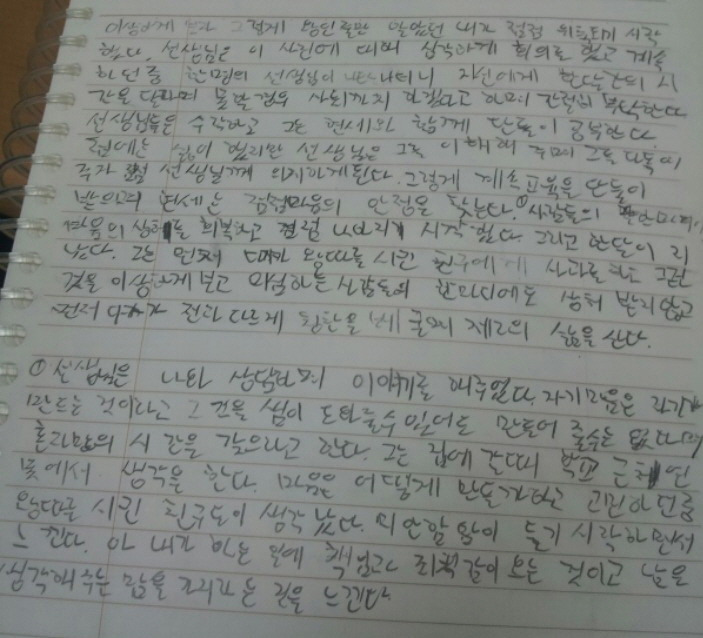 이상하게 그렇게 알았던 내가 점점 시작
했다. 선생님은 이 사건에 대해 심각하게 회의를 했고 계속
하던 중 한명의 선생님이 나타나더니 자신에게 한달간의 시
간을 달라며 못할경우 사퇴까지 하겠다고 하며 간절히 부탁한다
선생님들은 수락하고 그는 현세와 함께 단둘이 공부한다.
선생님은 그를 이해해 주며 그를
주자 점점 선생님께 의지하게된다. 그렇게 계속 교육을 단둘이
받으며 현세는 점점마음의 안정을 찾는다. ①사람들의
마음의 상처를 회복하고 점점 나아지기 시작했다. 그리고 한달이 지
났다. 그는 먼저 왕따를 시킨 친구에게 사과를 하고 그런
것을 이상하게 보고 의심하는 사람들의 한마디에도 상처 받지않고
먼저 다가가 전과 다르게 제2의 삶을 산다.
①선생님은 나와 상담하며 이야기를 해주었다. 자기마음은 자기가
만드는 것이라고 그것을 쌤이 도와줄수 있어도 만들어 줄수는 없다며
혼자만의 시간을 갖으라고 한다. 그는 집에 갈때 학교 근처 연
못에서 생각을 한다. 마음은 어떻게 만들까하는 고민하던중
왕따를 시킨 친구들이 생각났다. 미안함 많이 들기 시작하면서
느낀다. 아 내가 하는 일에 책임감 같이 오는 것이고 남을
생각해주는 맘을 가지라는 것을 느낀다